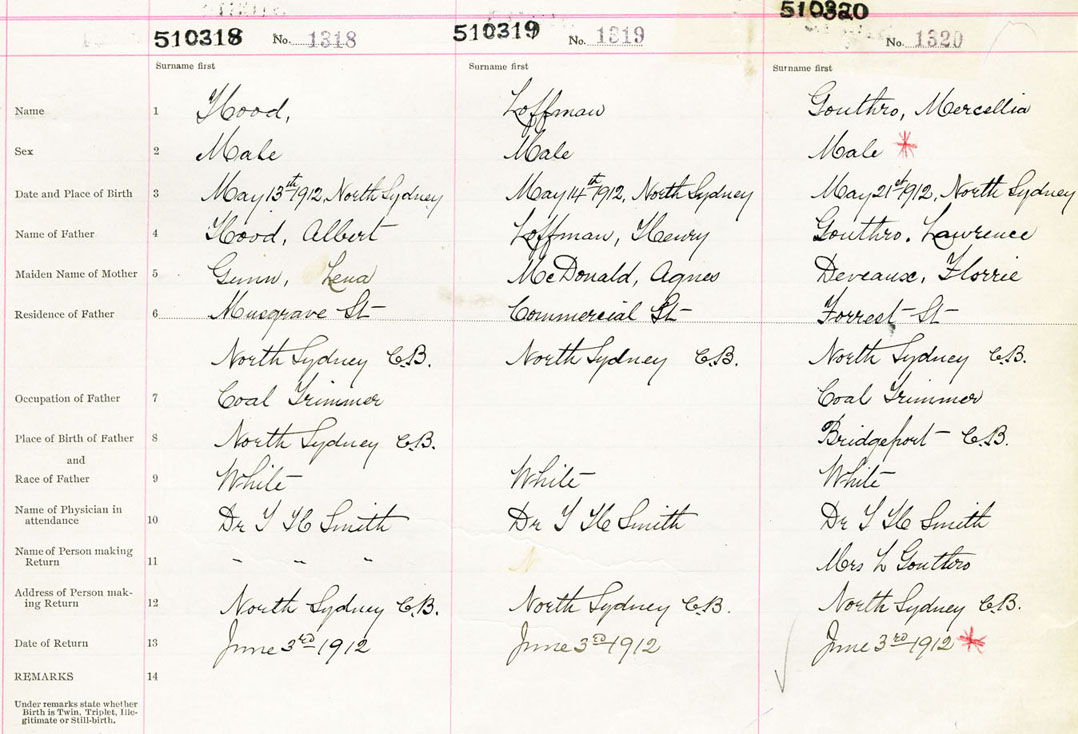 510318 No. 1318 510319 No. 1319 510320 No. 1320
Surname first Surname first Surname first
Name 1 Hood, Loffman Gouthro, Mercellia
Sex 2 Male Male Male *
Date and Place of Birth 3 May 13th 1912, North Sydney May 14th 1912, North Sydney May 21st 1912, North Sydney
Name of Father 4 Hood, Albert Loffman, Henry Gouthro, Lawrence
Maiden Name of Mother 5 Gunn, Lena McDonald, Agnes Deveaux, Florrie
Residence of Father 6 Musgrave St Commercial St Forrest St
North Sydney C.B. North Sydney C.B. North Sydney C.B.
Occupation of Father 7 Coal Trimmer Coal Trimmer
Place of Birth of Father 8 North Sydney C.B. Bridgeport C.B.
and
Race of Father 9 White White White
Name of Physician in
attendance 10 Dr T H Smith Dr T H Smith Dr T H Smith
Name of Person making
Return 11 " " " Mrs L Gouthro
Address of Person mak-
ing Return 12 North Sydney C.B. North Sydney C.B. North Sydney C.B.
Date of Return 13 June 3rd 1912 June 3rd 1912 June 3rd 1912 *
REMARKS 14
Under remarks state whether
Birth is Twin, Triplet, Ille-
gitimate or Still-birth.